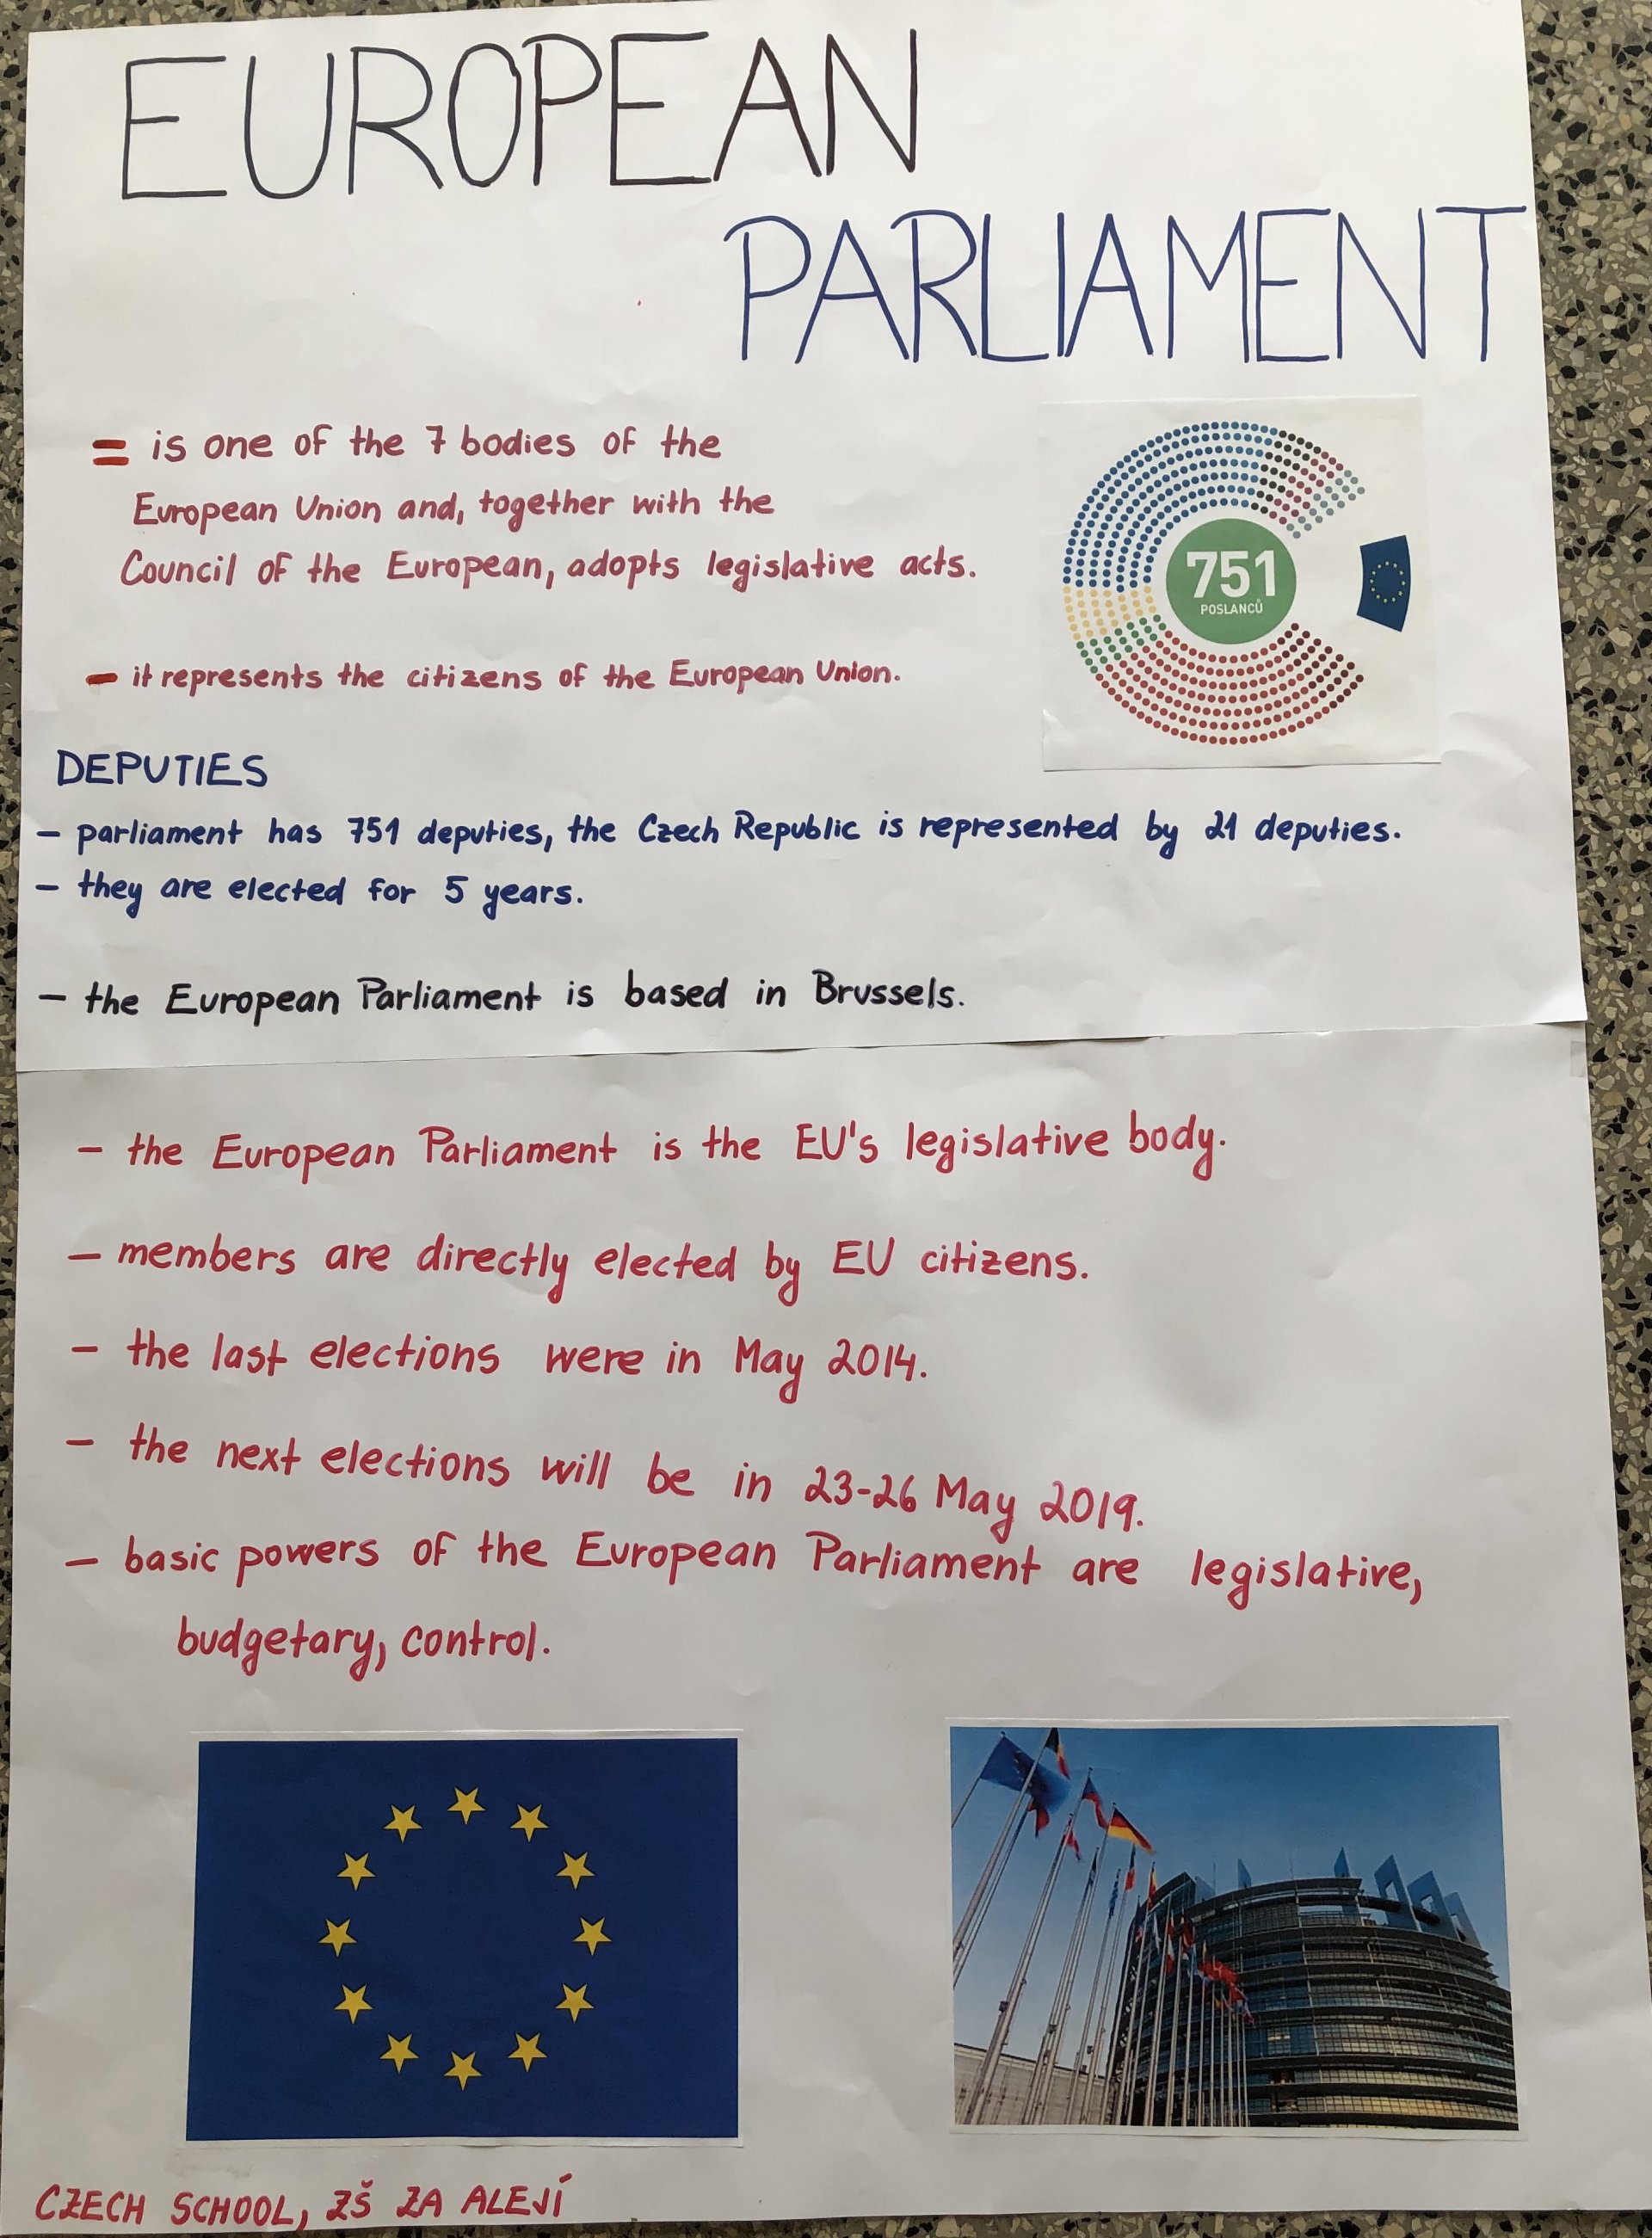 EUROPEAN
PARLIAMENT
= is one of the 7 bodies of the
European Union and, together with the
Council of the European, adopts legislative acts.
751
POSLANCŮ
- it represents the citizens of the European Union.
DEPUTIES
- parliament has 751 deputies, the Czech Republic is represented by 21 deputies.
- they are elected for 5 years.
- the European Parliament is based in Brussels.
- the European Parliament is the EU's legislative body.
- members are directly elected by EU citizens.
- the last elections were in May 2014.
- the next elections will be in 23-26 May 2019.
- basic powers of the European Parliament are legislative,
budgetary, control.
CZECH SCHOOL, ZŠ ZA ALEJÍ